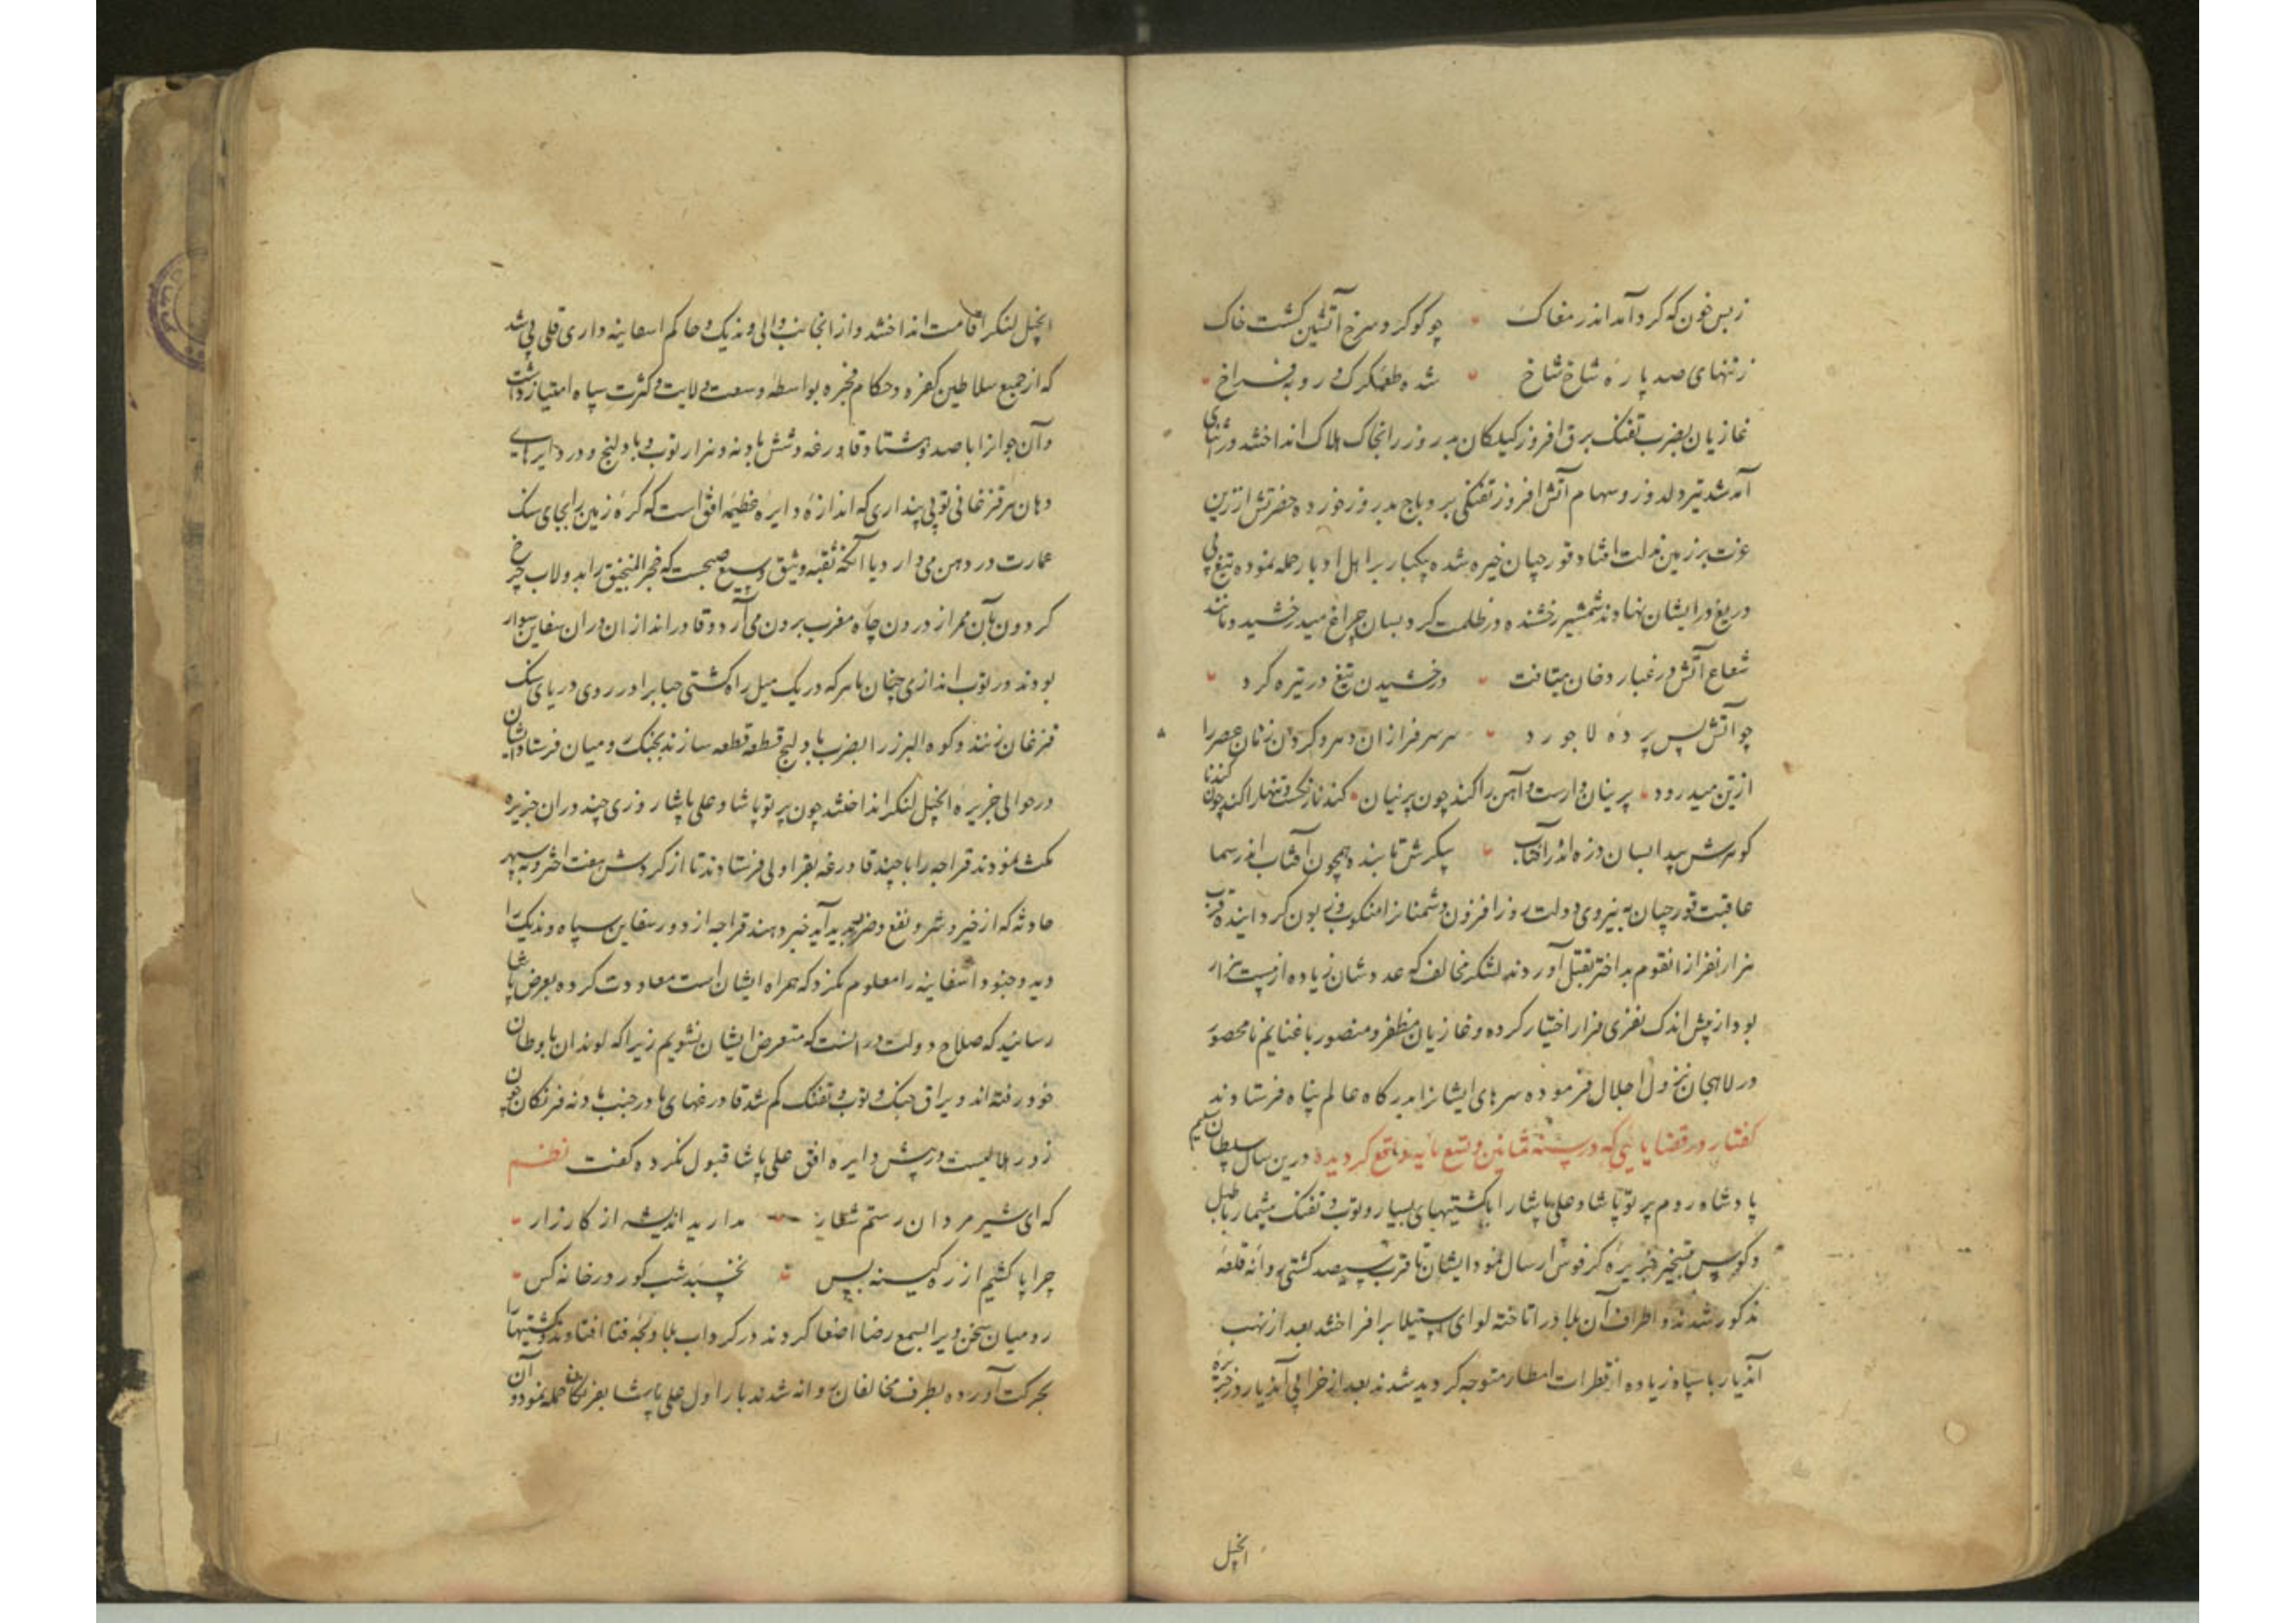 ز بس خون که کرد آمد اندر مغاک چو کوکرد سرخ آتشین کشت خاک
ز تنهای صد پاره شاخ شاخ شده طعمه کرک و روبه فراخ
غازیان بضرب تفنک برق افروز کیلکان بد روز را بخاک هلاک انداختند در اثنای
آمد شد تیر دلدوز و سهام آتش افروز تفنکی بر دباج بد روز خورده حضرتش از زین
عزت بر زمین مذلت افتاد قورچیان خیره شده یکبار بر اهل ادبار حمله نموده تیغ بی
دریغ در ایشان نهادند شمشیر رخشنده در ظلمت کرد بسان چراغ میدرخشید و مانند
شعاع آتش در غبار دخان میتافت درخشیدن تیغ در تیره کرد
چو آتش پس پرده لاجورد سر سرفرازان و سر و کردون زنان عصر را
از تن میدرود پرنیان وارست و آهن را کند چون پرنیان کند
کوهرش پیدا بسان ذره اندر آفتاب پیکرش تابنده همچون آفتاب اندر سما
عاقبت قورچیان به نیروی دولت روز افزون دشمنانرا منکوب و زبون کردانیده قرب
هزار نفر از انقوم بد اختر بقتل آوردند لشکر مخالف که عددشان زیاده از بیست هزار
بود از پیش اندک نفری فرار اختیار کرده و غازیان مظفر و منصور با غنایم نامحصور
در لاهجان نزول اجلال فرموده سرهای ایشانرا بدرکاه عالم پناه فرستادند
کفتار در قضایائی که در سنه ثمانین و تسع مایه واقع کردیده درین سال سلطان سلیم
پادشاه روم پرتو پاشا و علی پاشا را با کشتیهای بسیار و توب و تفنک بیشمار با طبل
و کوس بتسخیر جزیره کرفوس ارسال نمود ایشان با قرب سیصد کشتی روانه قلعه
مذکور شدند و اطراف آن بلاد را تاخته لوای استیلا برافراختند بعد از نهب
آندیار با سپاه زیاده از قطرات امطار متوجه کردید شدند بعد از خرابی آندیار روز جزیره
انجیل
انجیل لنکر اقامت انداختند و از انجانب والی وندیک و حاکم اسفانیه داری قلی پی شد
که از جمیع سلاطین کفره و حکام فجره بواسطه وسعت ولایت و کثرت سپاه امتیاز داشت
و آن جوانرا با صد و هشتاد قادرغه و شش بادنه و هزار توب و بادلنج و در دایرهای
دهان هر قزغانی توپی پنداری که اندازه دایره عظیمه افق است که کره زمین را بجای سنک
عمارت در دهن می دارد یا آنکه ثقبه وثیق وسیع صبحست که فجر المنجنیق را بدولاب چرخ
کردون بآن ممر از درون چاه مغرب برون می آرد و قادراندازان در ان سفاین سوار
بودند در توب اندازی چنان ماهر که در یک میل راه کشتی حباب را در روی دریای سنک
قزغان زنند و کوه البرز را بضرب بادلیج قطعه قطعه سازند بجنک رومیان فرستاد ایشان
در حوالی جزیره انجیل لنکر انداختند چون پرتو پاشا و علی پاشا روزی چند در ان جزیره
مکث نمودند قراجه را با چند قادرغه بقراولی فرستادند تا از کردش هفت اختر و نه سپهر
حادثه که از خیر و شر و نفع و ضر پدید آید خبر دهند قراجه از دور سفاین سپاه وندیک را
دید و جنود اسفانیه را معلوم نکرد که همراه ایشان است معاودت کرده بعرض پاشا
رسانید که صلاح دولت در انست که متعرض ایشان نشویم زیرا که لوندان باوطان
خود رفته اند و یراق جنک و توب و تفنک کم شد قادرغهای ما در جنب بادنه فرنکان چون
زورق هلالیست در پیش دایره افق علی پاشا قبول نکرده کفت نظم
که ای شیر مردان رستم شعار مدارید اندیشه از کارزار
چرا پا کشیم از ره کینه پس نخسبد شب کور در خانه کس
رومیان سخن ویرا بسمع رضا اصغا کردند در کرداب بلا و لجه فنا افتادند و کشتیها را
بحرکت آورده بطرف مخالفان روانه شدند بار اول علی پاشا بفرنکان حمله نمود و آن